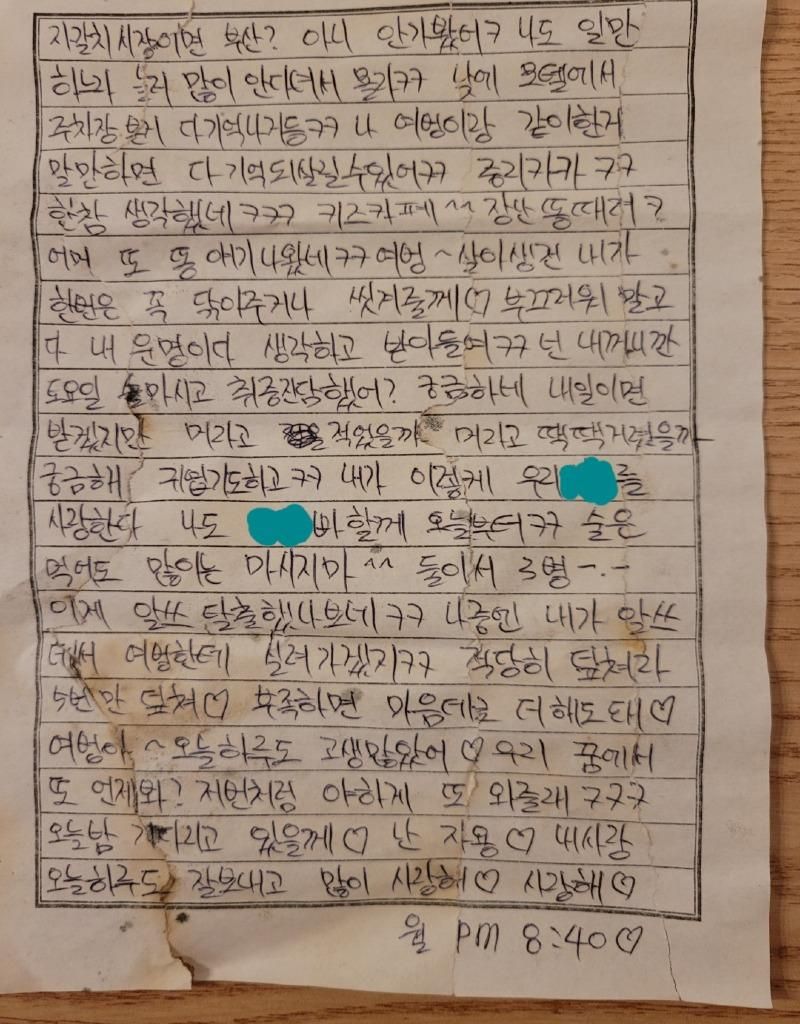 자갈치시장이면 부산? 아니 안가봤어ㅋ 나도 일만
하느라 놀러 많이 안다녀서 몰라ㅋㅋ 낮에 모텔에서
주차장 본거 다기억나거등ㅋㅋ 나 여벙이랑 같이한거
말만하면 다 기억되살릴수있어ㅋㅋ 종리카카 ㅋㅋ
한참 생각했네ㅋㅋㅋ 키즈카페^^ 장난 똥때려?
어머 또 똥 얘기나왔네ㅋㅋ여벙~살아생전 내가
한번은 꼭 닦아주거나 씻겨줄께♡ 부끄러워 말고
다 내 운명이다 생각하고 받아들여ㅋㅋ 넌 내꺼니깐
토요일 술마시고 취중진담했어? 궁금하네 내일이면
받겠지만 머라고 적었을까 머라고 떽떽거렸을까
궁금해 귀엽기도하고ㅋㅋ 내가 이렇케 우리 를
사랑한다 나도 바할께 오늘부터ㅋㅋ 술은
먹어도 많이는 마시지마^^ 둘이서 3병-.-
이제 알쓰 탈출했나보네ㅋㅋ 나중엔 내가 알쓰
돼서 여벙한테 실려가겠지ㅋㅋ 적당히 닾쳐라
5번만 닾쳐♡ 부족하면 마음데로 더해도돼♡
여벙아~오늘하루도 고생많았어♡우리 꿈에서
또 언제와? 저번처럼 야하게 또 와줄래ㅋㅋㅋ
오늘밤 기다리고 있을께♡ 난 자용♡ 내사랑
오늘하루도 잘보내고 많이 사랑해♡ 사랑해♡
월 PM 8:40♡